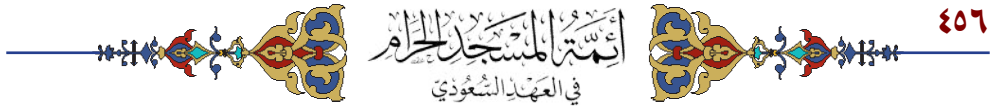 ٤٥٦
أَئِمَّةُ المَسْجِدِ الحَرَامِ
في العَهْدِ السُّعُودِيّ